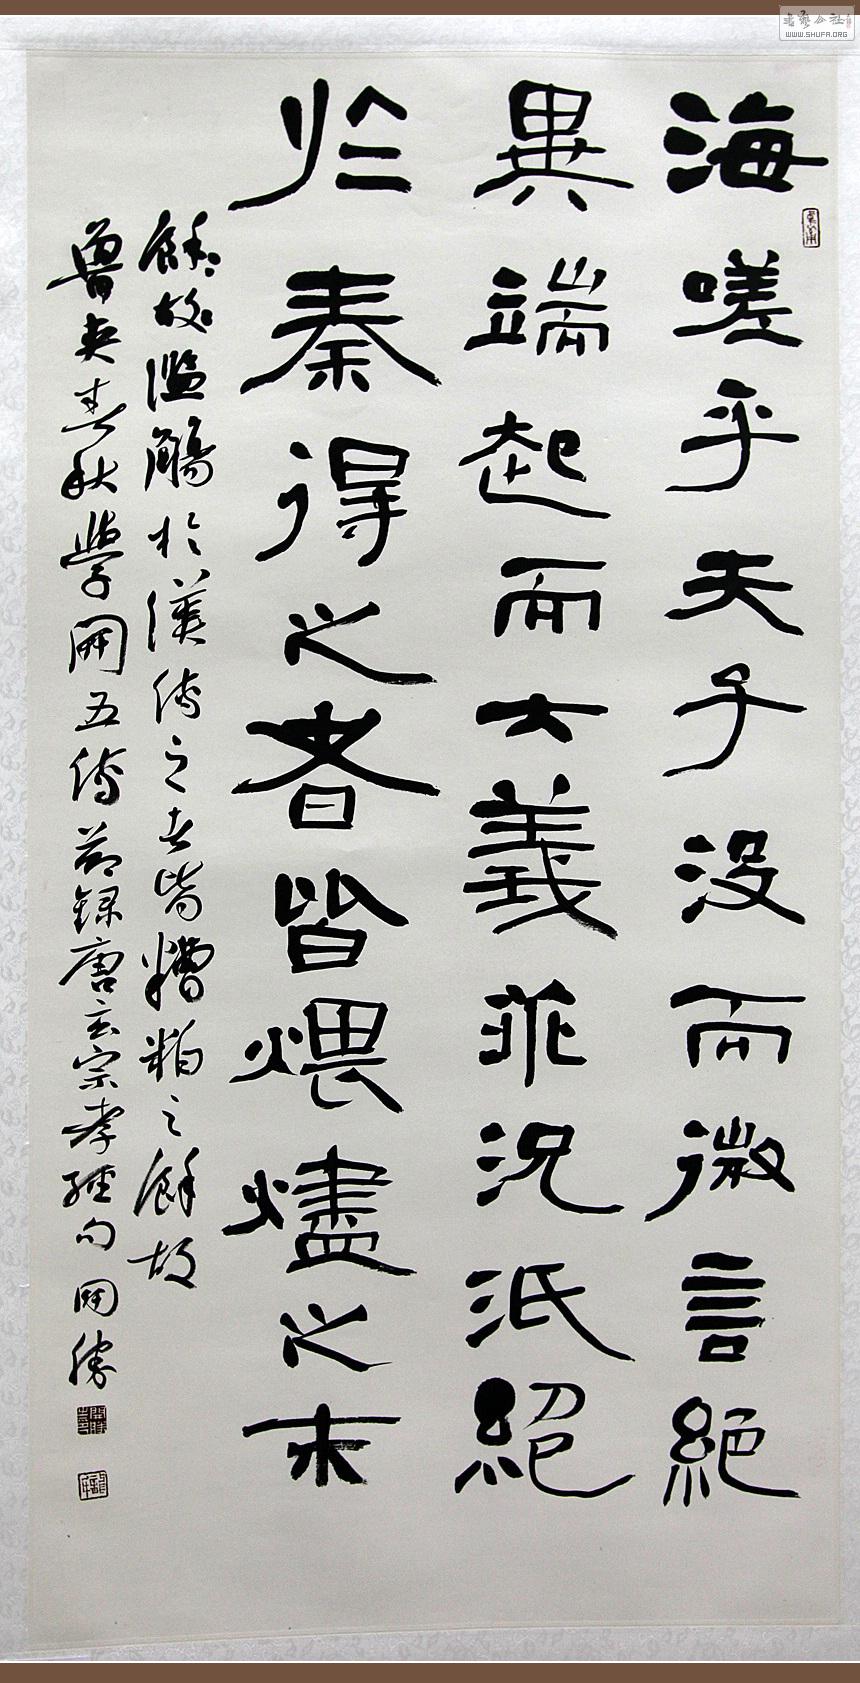 海嗟乎夫子没而微言絕
異端起而大義乖況泯絕
於秦得之者皆煨燼之末
餘故濫觴於漢傳之者皆糟粕之餘故
魯史春秋學開五傳節錄唐玄宗孝經句開勝
書藝公社
WWW.SHUFA.ORG